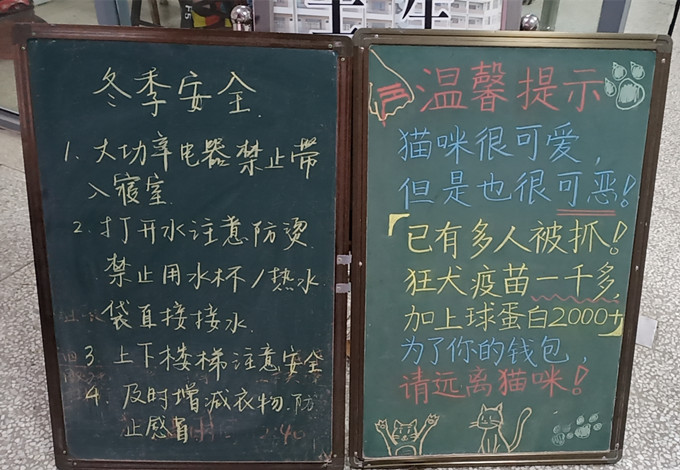 冬季安全
1. 大功率电器禁止带
入寝室.
2. 打开水注意防烫.
禁止用水杯/热水
袋直接接水.
3. 上下楼梯注意安全
4. 及时增减衣物.防
止感冒
温馨提示
猫咪很可爱,
但是也很可恶!
『已有多人被抓!
狂犬疫苗一千多,
加上球蛋白2000+』
为了你的钱包,
请远离猫咪!